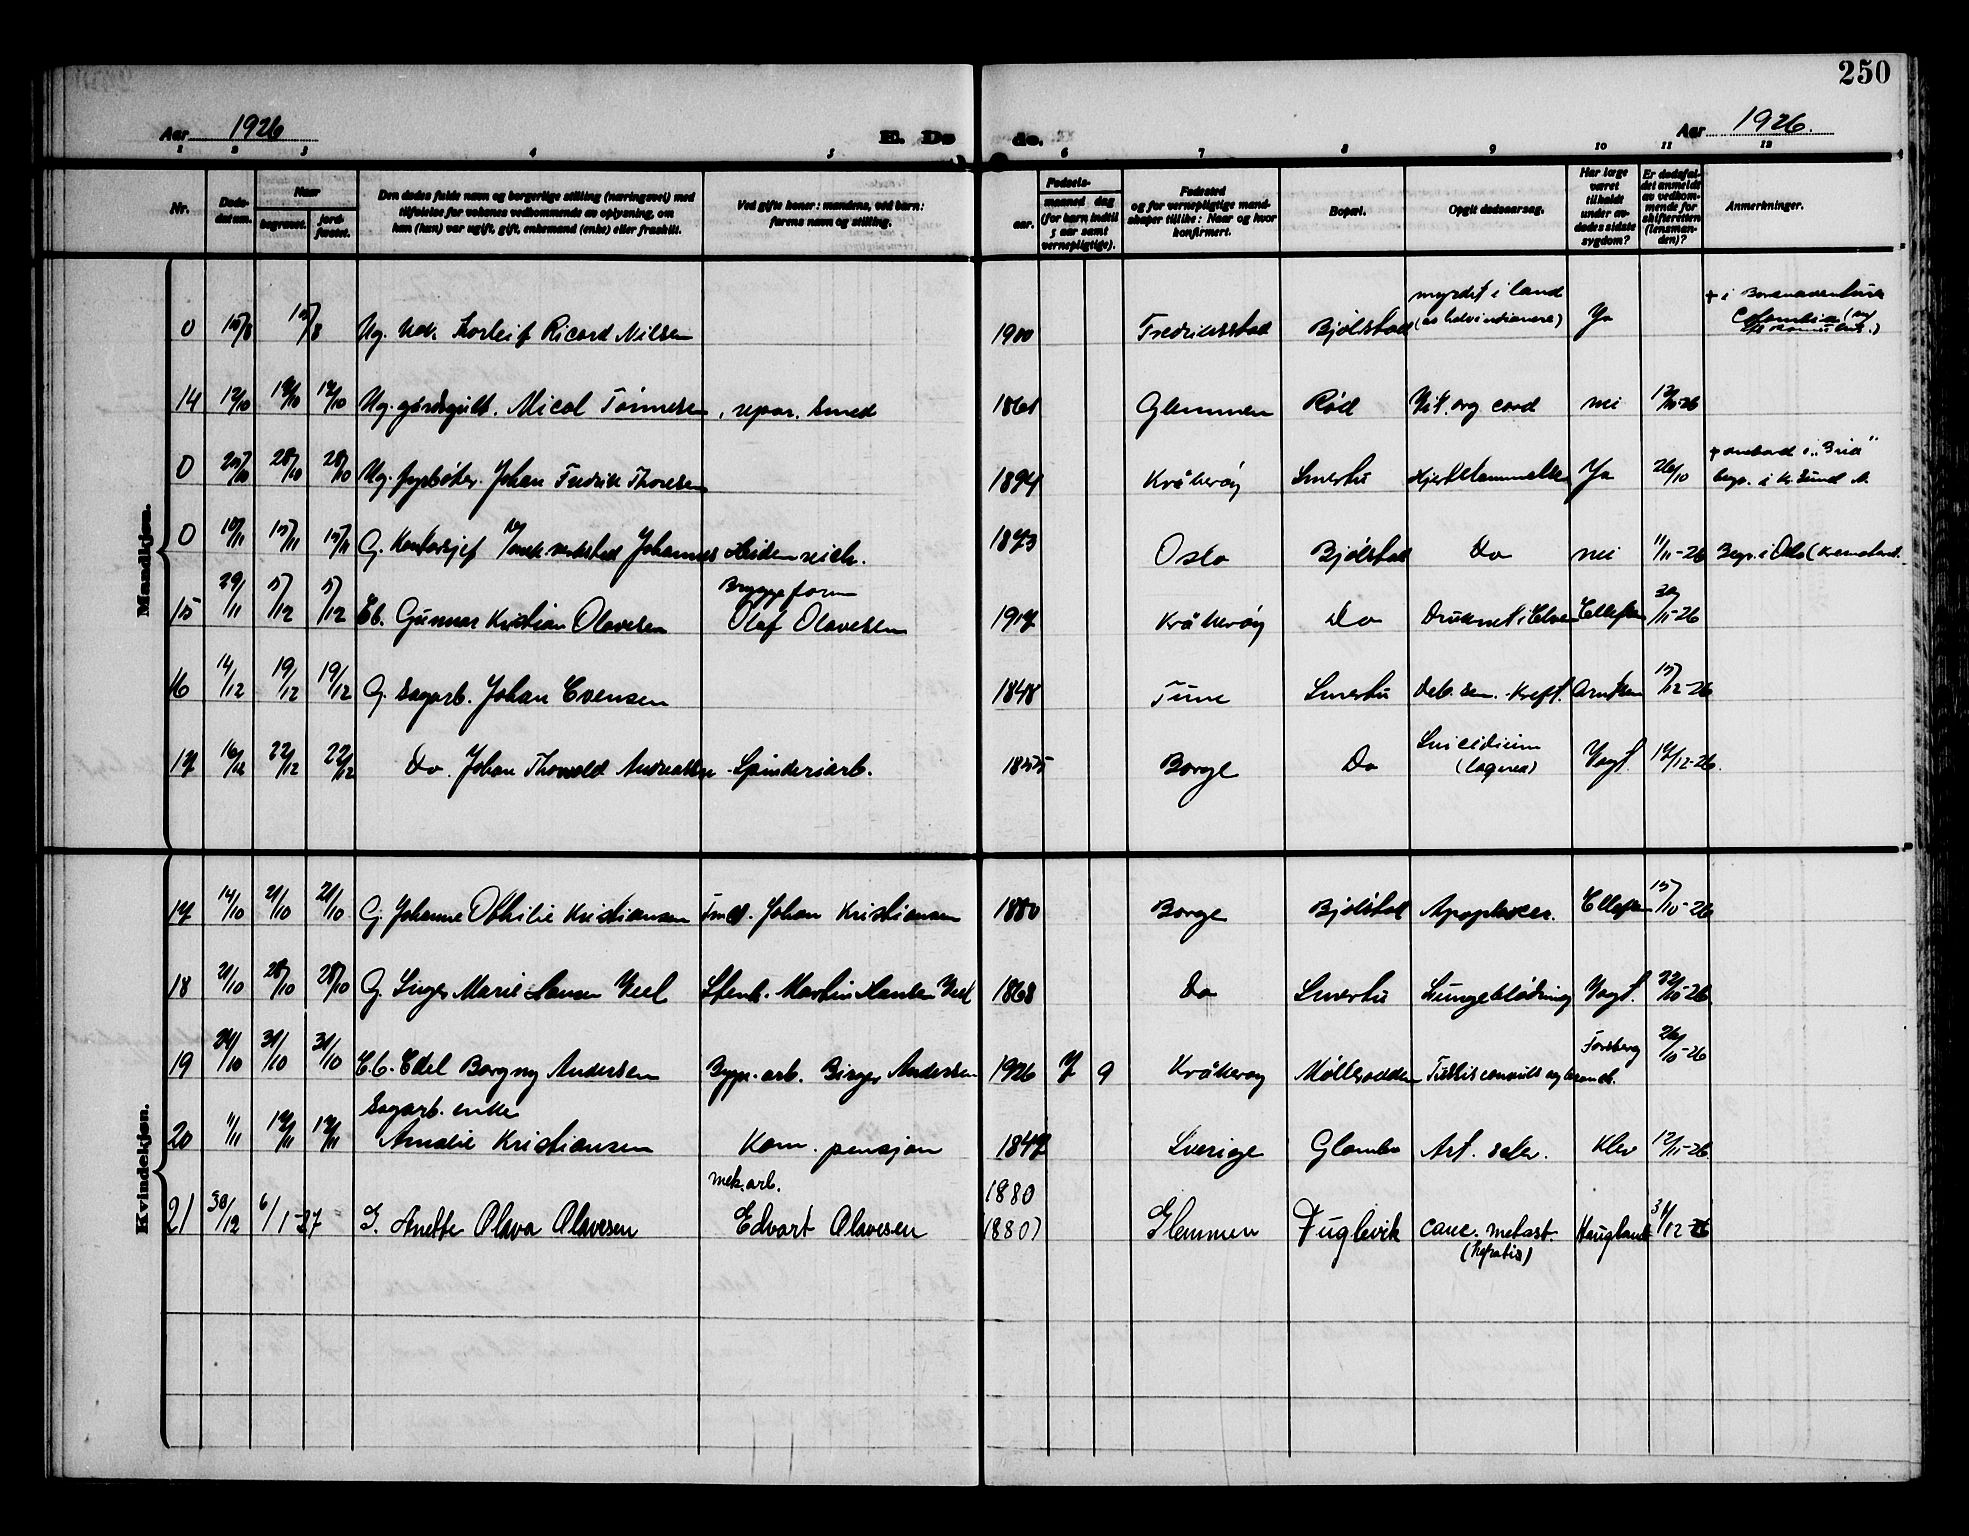 250
Aar 1926 E. Dø de. Aar 1926.
1 2 3 4 5 6 7 8 9 10 11 12
Nr.
Døds-datum.
Naar
begravet.
jord-fæstet.
Den dødes fulde navn og borgerlige stilling (næringsvei) med
tilføielse for voksnes vedkommende av oplysning, om
han (hun) var ugift, gift, enkemand (enke) eller fraskilt.
Ved gifte koner: mandens, ved barn:
farens navn og stilling.
Fødsels-
aar.
maaned dag
(for barn indtil
5 aar samt
vernepligtige).
Fødested
og for vernepligtige mand-
skaper tillike: Naar og hvor
konfirmert.
Bopæl.
Opgit dødsaarsag.
Har læge
været
tilkaldt
under av-
dødes sidste
sygdom?
Er dødsfal-
det anmeldt
av vedkom-
mende for
skifteretten
(lensman-
den)?
Anmerkninger.
Mandkjøn.
0 15/8 15/8 Ug. Torleif Ricard Nilsen 1900 Fredriksstad Bjølstad myrdet i land (av halvindianere) Ja + i Bonaventura Colombia
14 12/10 Ug. gårdsgutt. Micol Tønnesen, repar. smed 1861 Glemmen Rød Vit. org cord nei
0 25/10 28/10 28/10 Ug. fyrbøter. Johan Fredrik Thoresen 1894 Kråkerøy Smertu Hjertelammelse Ja 26/10 + ombord i "Bria" begr. i Kr.Sund N.
0 10/11 15/11 15/11 G. Kontorsjef mek. verksted Johannes Heidenreich. 1873 Oslo Bjølstad Do nei 11/11-26 Begr. i Oslo
15 29/11 5/12 5/12 Eb. Gunnar Kristian Olavesen Bryggeform Olaf Olavesen 1917 Kråkerøy Do Druknet i Elven Ellefsen 30/11-26
16 14/12 19/12 19/12 G. Sagarb. Johan Evensen 1848 Tune Smertu Deb. sen. Kreft. Arntzen 15/12-26
17 16/12 22/12 22/12 Do. Johan Thorvald Andreassen Spinderiarb. 1855 Borge Do Suicidium (laqueo) Vogt. 17/12-26.
Kvindekjøn.
17 14/10 21/10 21/10 G. Johanne Othilie Kristiansen Johan Kristiansen 1880 Borge Bjølstad Apoplexi. Ellefsen 15/10-26
18 21/10 28/10 28/10 G. Inger Marie Hansen Yeel Stenh. Martin Hansen Yeel 1868 Do Smertu Lungeblødning Vogt. 22/10-26
19 24/10 31/10 31/10 E.b. Edel Borgny Andersen Bygn.arb. Birger Andersen 1926 7 9 Kråkerøy Møllerodden Tussis convuls og bronch. Forsberg 26/10-26
20 11/11 17/11 17/11 Sagarb. enke Amalie Kristiansen Kom. pensjon 1847 Sverige Glombo Art. scler. Klev 12/11-26
21 30/12 6/1-27 G. Anette Olava Olavesen mek.arb. Edvart Olavesen 1880 (1880) Glemmen Fuglevik canc. metast. (hepatis) Haugland 31/12-26